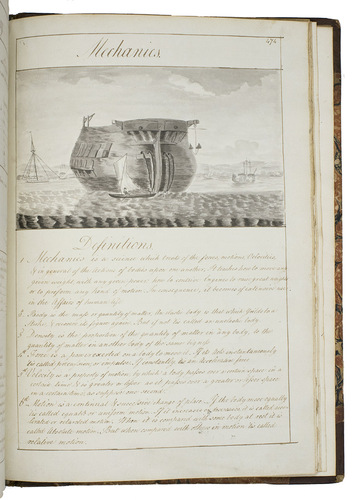 Mechanics.
474
Definitions.
1. Mechanics is a science which treats of the forces, motions, Velocities,
& in general of the actions of bodies upon one another. It teaches how to move any
given weight with any given power; how to contrive Engines to raise great weights
or to perform any kind of motion. In consequence, it becomes of extensive use
in the Affairs of human life.
2. Body is the mass or quantity of matter. An elastic body is that which yields to a
Stroke, & recovers its figure again. But if not tis called an unelastic body.
3. Density is the proportion of the quantity of matter in any body, to the
quantity of matter in another body of the same bigness.
4. Force is a power exerted on a body to move it. If it act instantaneously,
tis called percussion or impulse. If constantly tis an accelerative force.
5. Velocity is a property of motion by which a body passes over a certain space in a
certain time; & is greater or less as it passes over a greater or less space
in a certain time; as suppose one second.
6. Motion is a continual & successive change of place. If the body move equally
tis called equable or uniform motion. If it increases or decreases it is called accel-
erated or retarded motion. When it is compared with some body at rest it is
called absolute motion. But when compared with others in motion tis called
relative motion.